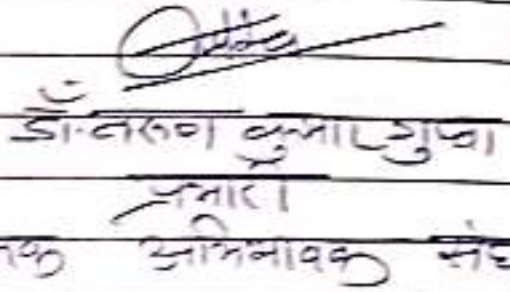 डॉ. तरुण कुमार गुप्ता
प्रभारी
अभिभावक संघ